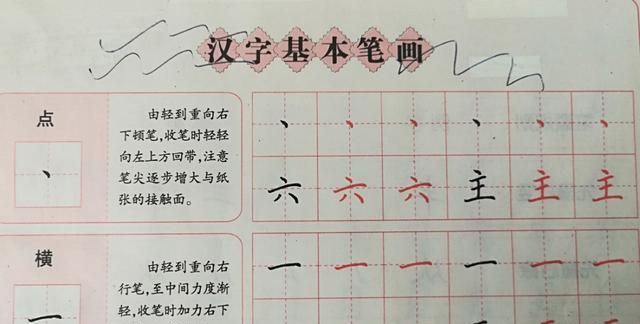 汉字基本笔画
点
由轻到重向右
下顿笔,收笔时轻轻
向左上方回带,注意
笔尖逐步增大与纸
张的接触面。
丶
丶 丶 丶 丶 丶 丶
六 六 六 主 主 主
横
由轻到重向右
行笔,至中间力度渐
轻,收笔时加力右下
一
一 一 一 一 一 一